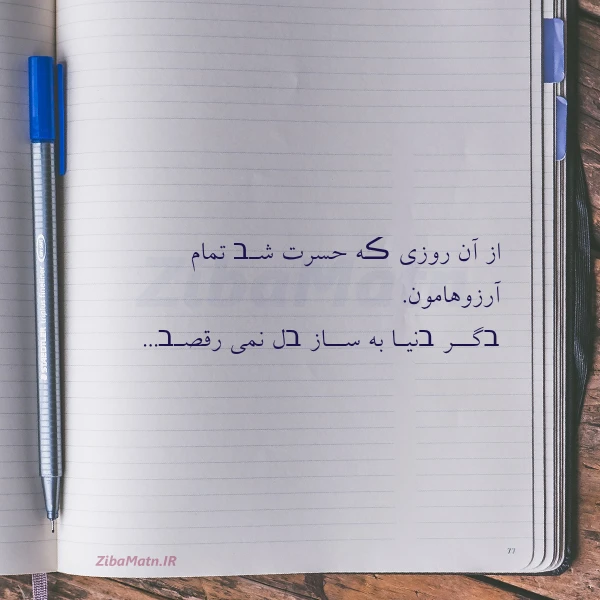 از آن روزی که حسرت شد تمام
آرزوهامون.
دگر دنیا به ساز دل نمی رقصد...
ZibaMatn.IR
77